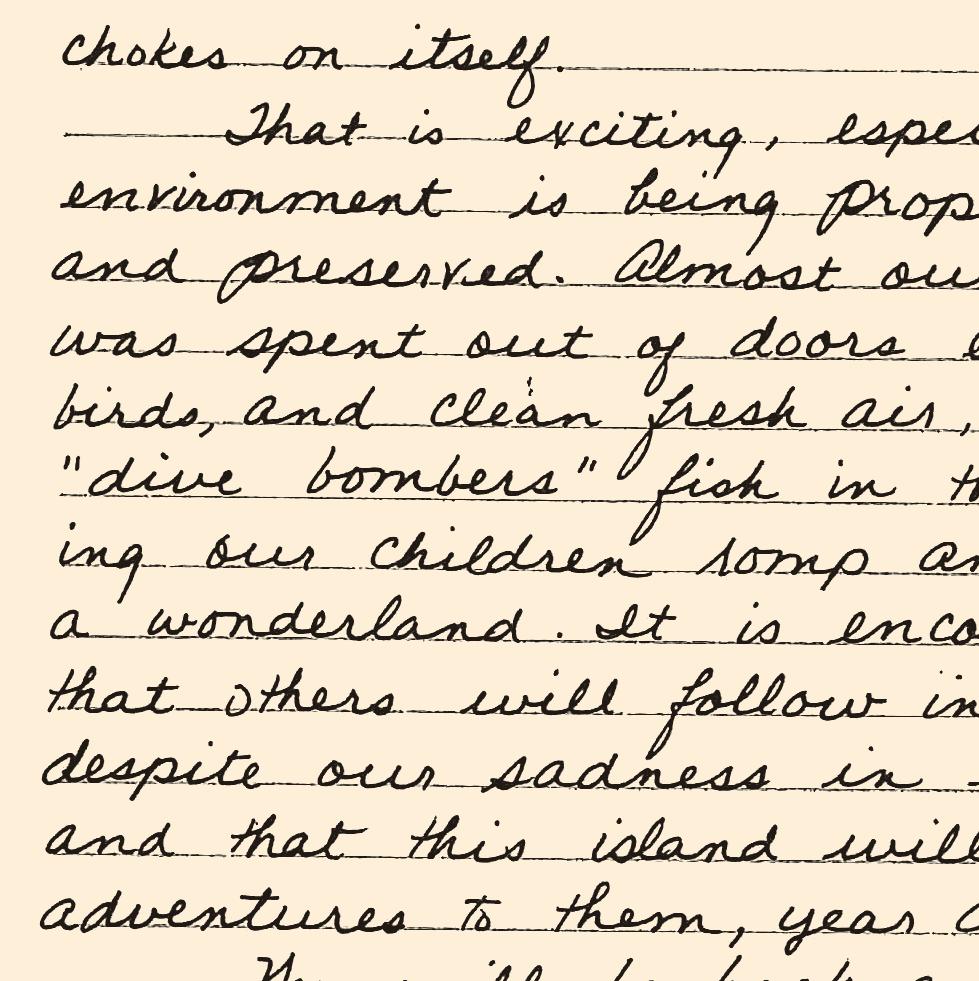 chokes on itself.
That is exciting, espe
environment is being prop
and preserved. Almost ou
was spent out of doors
birds, and clean fresh air,
"dive bombers" fish in th
ing our children romp an
a wonderland. It is enco
that others will follow in
despite our sadness in
and that this island will
adventures to them, year